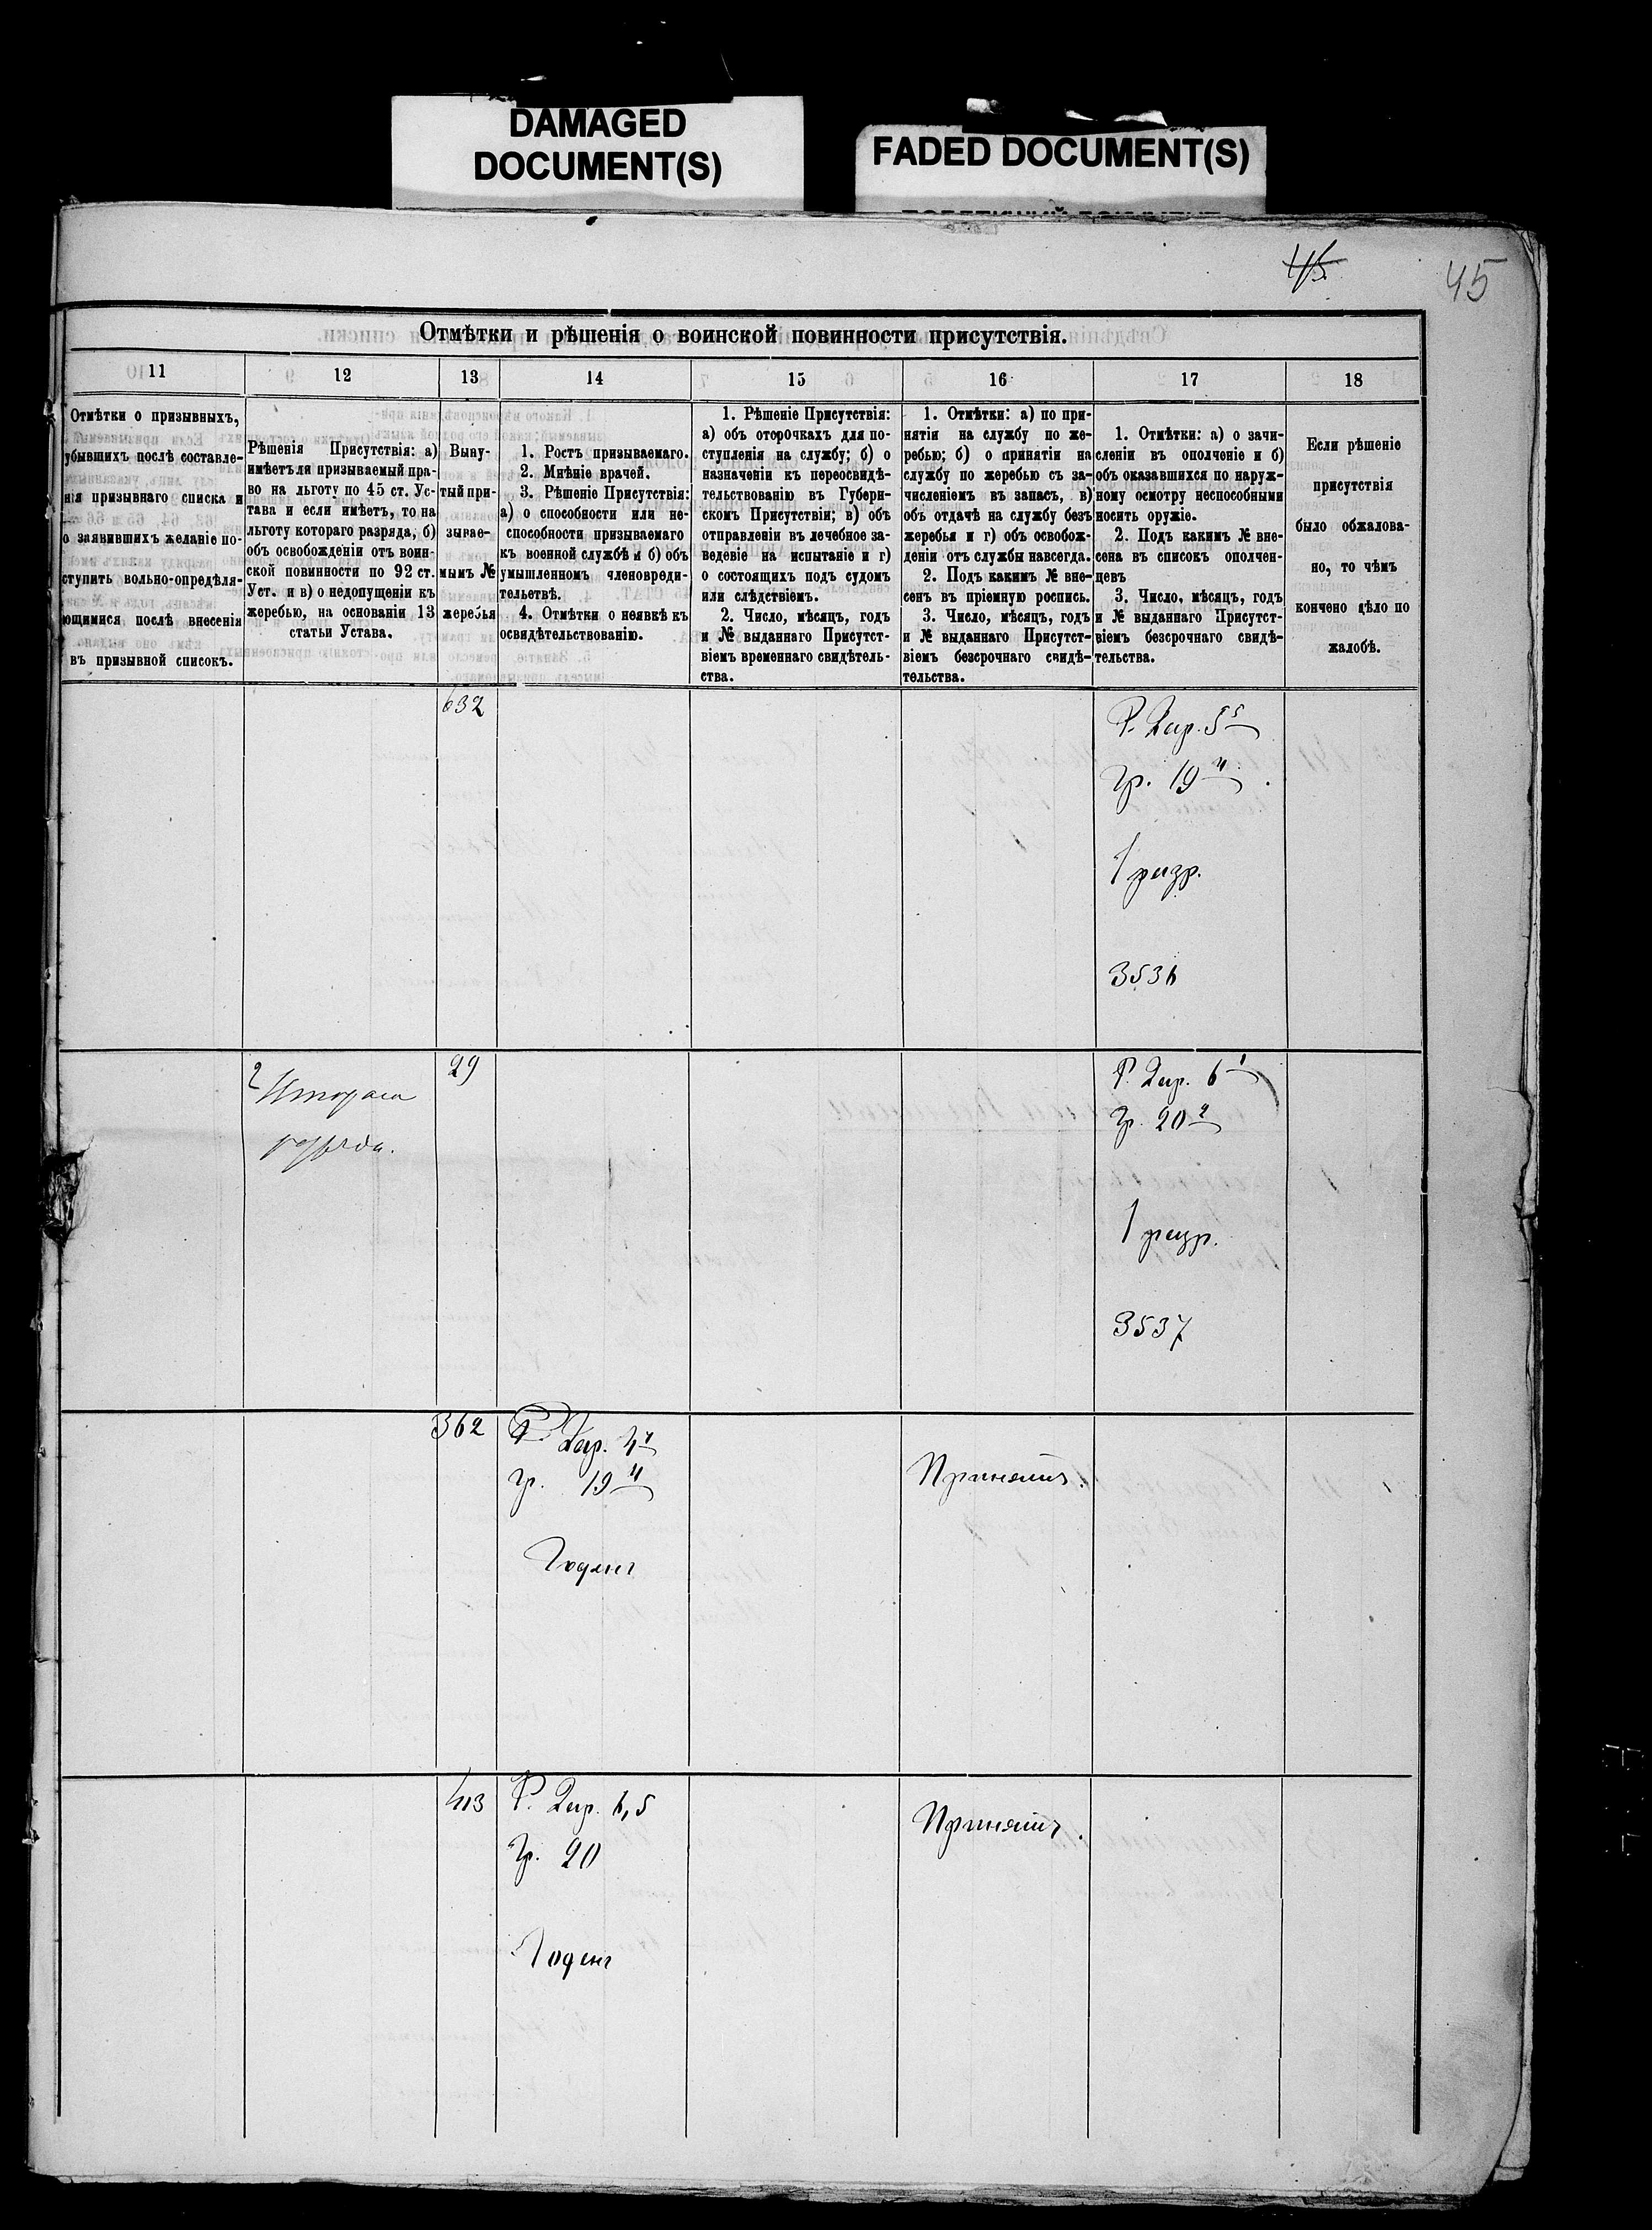 DAMAGED
DOCUMENT(S)
FADED DOCUMENT(S)
45
45
Отмѣтки и рѣшенія о воинской повинности присутствія.
11
12
13
14
15
16
17
18
Отмѣтки о призывныхъ,
убывшихъ послѣ составле-
нія призывнаго списка и
о заявившихъ желаніе по-
ступить вольно-опредѣля-
ющимися послѣ внесенія
въ призывной списокъ.
Рѣшенія Присутствія: а)
имѣетъ ли призываемый пра-
во на льготу по 45 ст. Ус-
тава и если имѣетъ, то на
льготу котораго разряда, б)
объ освобожденіи отъ воин-
ской повинности по 92 ст.
Уст. и в) о недопущеніи къ
жеребью, на основаніи 13
статьи Устава.
Выну-
тый при-
зывае-
мымъ №
жеребья
1. Ростъ призываемаго.
2. Мнѣніе врачей.
3. Рѣшеніе Присутствія:
а) о способности или не-
способности призываемаго
къ военной службѣ и б) объ
умышленномъ членовреди-
тельетвѣ.
4. Отмѣтки о неявкѣ къ
освидѣтельствованію.
1. Рѣшеніе Присутствія:
а) объ оторочкахъ для по-
ступленія на службу; б) о
назначеніи къ переосвидѣ-
тельствованію въ Губерн-
скомъ Присутствіи; в) объ
отправленіи въ лечебное за-
ведевіе на испытаніе и г)
о состоящихъ подъ судомъ
или слѣдствіемъ.
2. Число, мѣсяцъ, годъ
и № выданнаго Присутст-
віемъ временнаго свидѣтель-
ства.
1. Отмѣтки: а) по при-
нятіи на службу по же-
ребью; б) о принятіи на
службу по жеребью съ за-
численіемъ въ запасъ, в)
объ отдачѣ на службу безъ
жеребья и г) объ освобож-
деніи отъ службы навсегда.
2. Подъ какимъ № вне-
сенъ въ пріемную роспись.
3. Число, мѣсяцъ, годъ
и № выданнаго Присутст-
віемъ безсрочнаго свидѣ-
тельства.
1. Отмѣтки: а) о зачи-
сленіи въ ополченіе и б)
объ оказавшихся по наруж-
ному осмотру неспособными
носить оружіе.
2. Подъ какимъ № вне-
сена въ списокъ ополчен-
цевъ
3. Число, мѣсяцъ, годъ
и № выданнаго Присутст-
віемъ безсрочнаго свидѣ-
тельства.
Если рѣшеніе
присутствія
было обжалова-
но, то чѣмъ
кончено дѣло по
жалобѣ.
632
Р. 2 ар. 5
гр. 19
1 разр.
3536
2
разряда.
29
Р. 2 ар. 6
гр. 20
1 разр.
3537
362
Р. 2 ар. 4
гр. 19
Годенъ
Принятъ.
413
Р. 2 ар. 6,5
гр. 20
Годенъ
Принятъ.